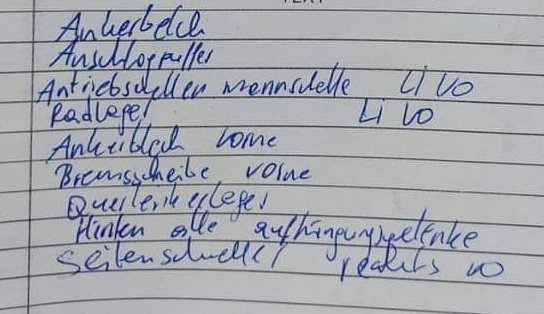 Ankerbelch
Anschlagpuffer
Antriebswellen mannschelle Li VO
Radlager Li VO
Ankerblech vorne
Bremsscheibe vorne
Querlenkerlager
Hinten alle aufhängungsgelenke
Seitenschweller rechts vo